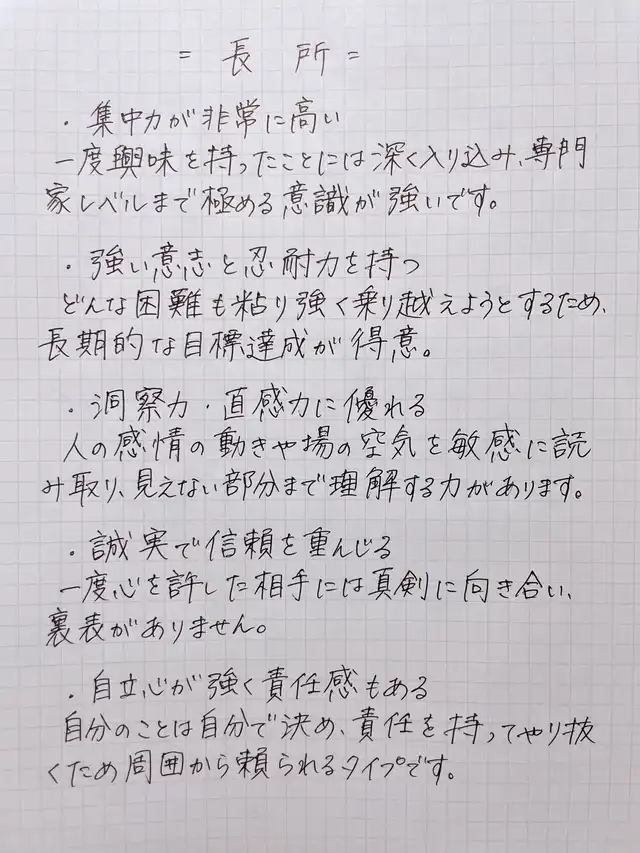 = 長 所 =
・集中力が非常に高い
一度興味を持ったことには深く入り込み、専門
家レベルまで極める意識が強いです。
・強い意志と忍耐力を持つ
どんな困難も粘り強く乗り越えようとするため、
長期的な目標達成が得意。
・洞察力・直感力に優れる
人の感情の動きや場の空気を敏感に読
み取り、見えない部分まで理解する力があります。
・誠実で信頼を重んじる
一度心を許した相手には真剣に向き合い、
裏表がありません。
・自立心が強く責任感もある
自分のことは自分で決め、責任を持ってやり抜
くため周囲から頼られるタイプです。